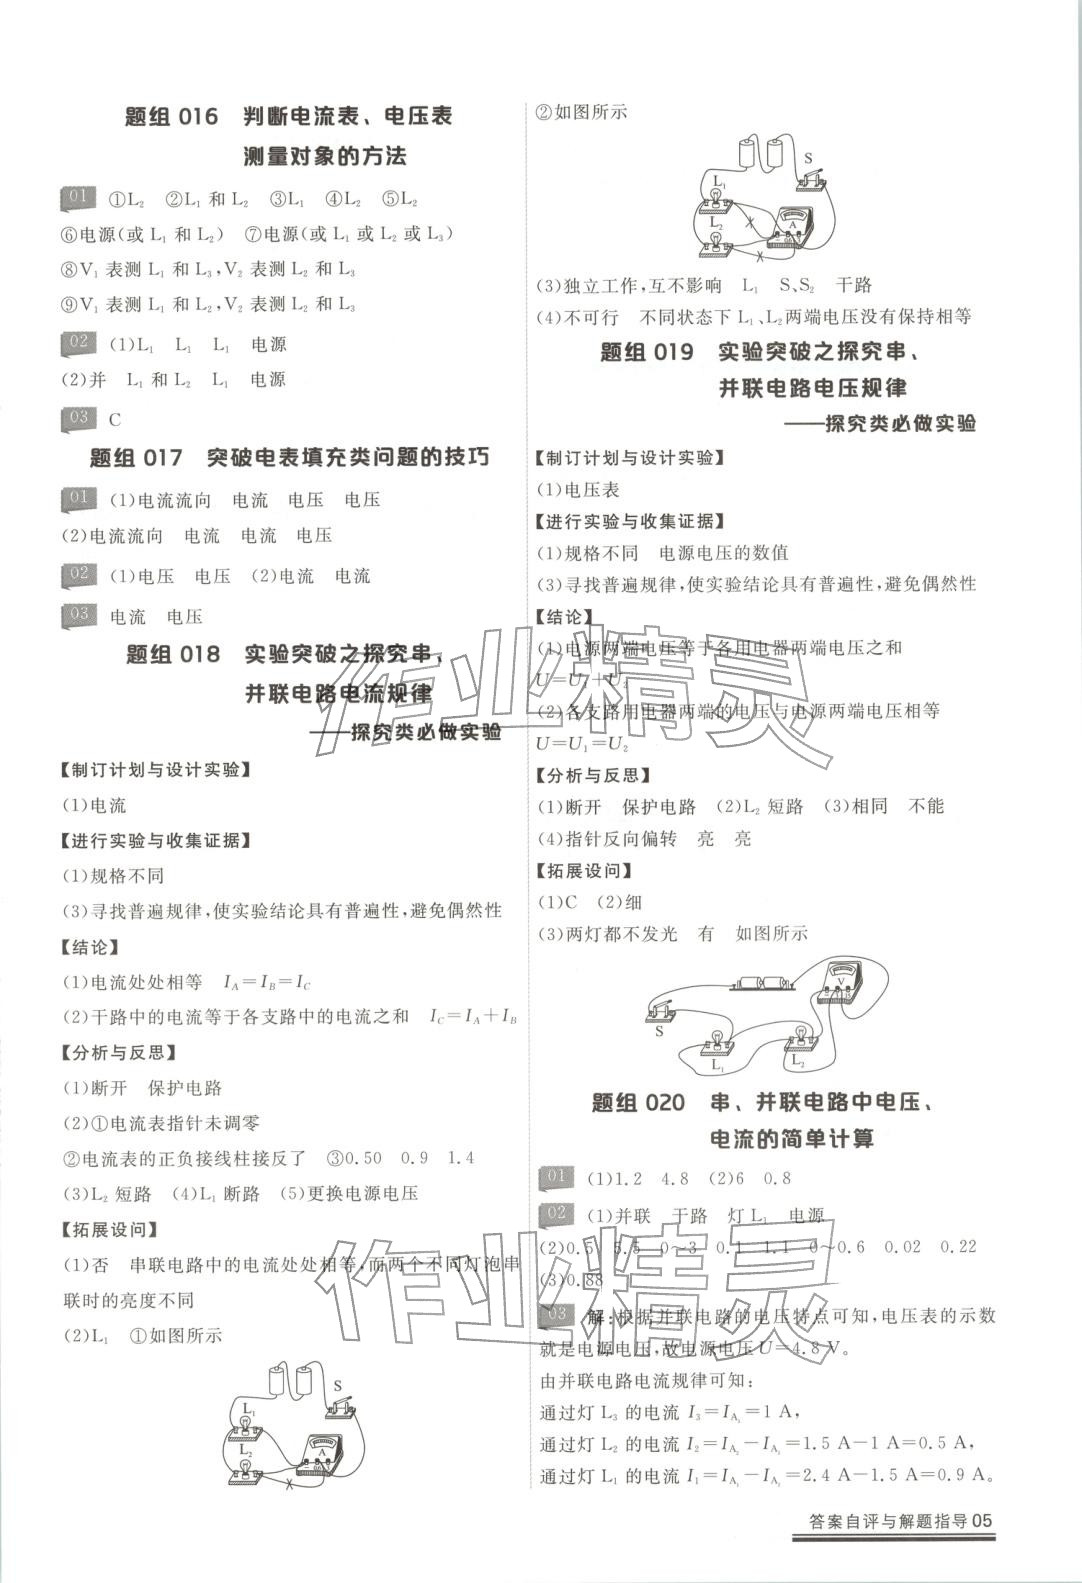 题组 016 判断电流表、电压表
测量对象的方法
01 ①L₂ ②L₁ 和 L₂ ③L₁ ④L₂ ⑤L₂
⑥电源(或 L₁ 和 L₂) ⑦电源(或 L₁ 或 L₂ 或 L₃)
⑧V₁ 表测 L₁ 和 L₃,V₂ 表测 L₂ 和 L₃
⑨V₁ 表测 L₁ 和 L₂,V₂ 表测 L₂ 和 L₃
02 (1)L₁ L₁ L₁ 电源
(2)并 L₁ 和 L₂ L₁ 电源
03 C
题组 017 突破电表填充类问题的技巧
01 (1)电流流向 电流 电压 电压
(2)电流流向 电流 电流 电压
02 (1)电压 电压 (2)电流 电流
03 电流 电压
题组 018 实验突破之探究串、
并联电路电流规律
——探究类必做实验
【制订计划与设计实验】
(1)电流
【进行实验与收集证据】
(1)规格不同
(3)寻找普遍规律,使实验结论具有普遍性,避免偶然性
【结论】
(1)电流处处相等 I_A=I_B=I_C
(2)干路中的电流等于各支路中的电流之和 I_C=I_A+I_B
【分析与反思】
(1)断开 保护电路
(2)①电流表指针未调零
②电流表的正负接线柱接反了 ③0.50 0.9 1.4
(3)L₂ 短路 (4)L₁ 断路 (5)更换电源电压
【拓展设问】
(1)否 串联电路中的电流处处相等,而两个不同灯泡串
联时的亮度不同
(2)L₁ ①如图所示
S
L₁
L₂
A
②如图所示
S
L₁
L₂
A
(3)独立工作,互不影响 L₁ S、S₂ 干路
(4)不可行 不同状态下 L₁、L₂两端电压没有保持相等
题组 019 实验突破之探究串、
并联电路电压规律
——探究类必做实验
【制订计划与设计实验】
(1)电压表
【进行实验与收集证据】
(1)规格不同 电源电压的数值
(3)寻找普遍规律,使实验结论具有普遍性,避免偶然性
【结论】
(1)电源两端电压等于各用电器两端电压之和
U=U₁+U₂
(2)各支路用电器两端的电压与电源两端电压相等
U=U₁=U₂
【分析与反思】
(1)断开 保护电路 (2)L₂ 短路 (3)相同 不能
(4)指针反向偏转 亮 亮
【拓展设问】
(1)C (2)细
(3)两灯都不发光 有 如图所示
V
S
L₁
L₂
题组 020 串、并联电路中电压、
电流的简单计算
01 (1)1.2 4.8 (2)6 0.8
02 (1)并联 干路 灯 L₁ 电源
(2)0.5 5.5 0~3 0.1 1.1 0~0.6 0.02 0.22
(3)0.88
03 解:根据并联电路的电压特点可知,电压表的示数
就是电源电压,故电源电压 U=4.8 V。
由并联电路电流规律可知:
通过灯 L₃ 的电流 I₃=I_A₁=1 A,
通过灯 L₂ 的电流 I₂=I_A₂-I_A₁=1.5 A-1 A=0.5 A,
通过灯 L₁ 的电流 I₁=I_A₁-I_A₂=2.4 A-1.5 A=0.9 A。
答案自评与解题指导 05
作业精灵
作业精灵